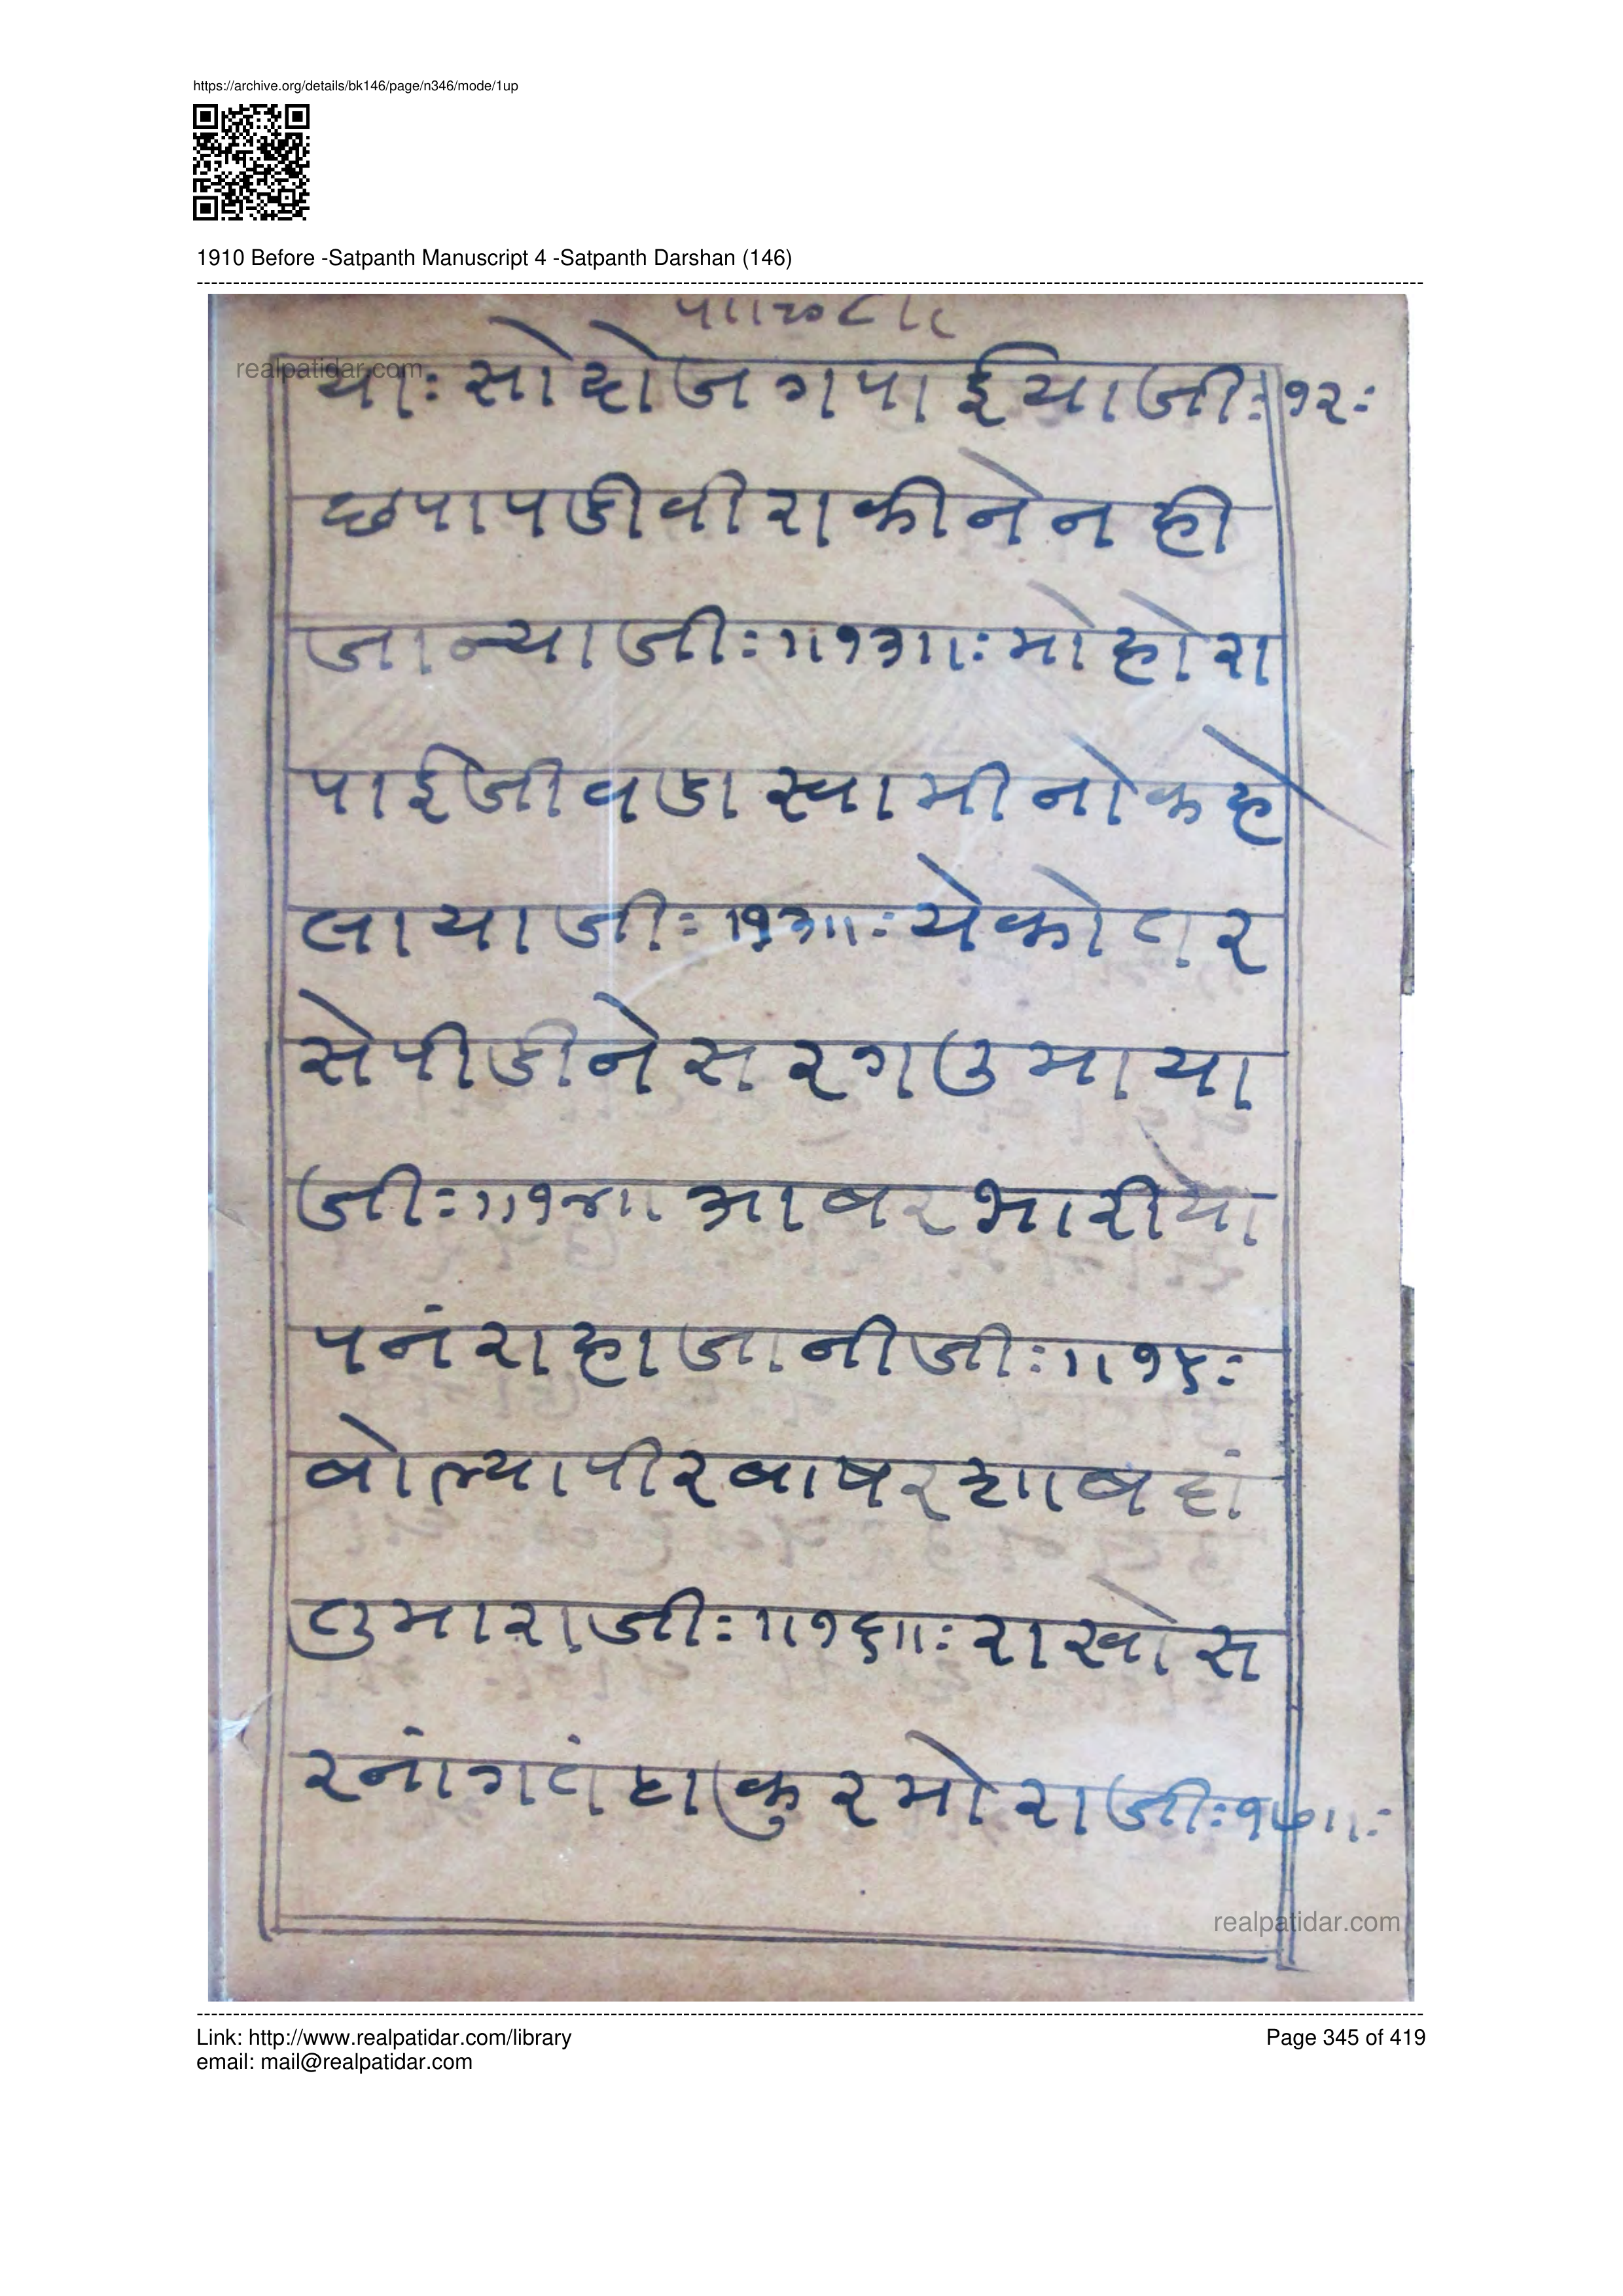 https://archive.org/details/bk146/page/n346/mode/1up
1910 Before -Satpanth Manuscript 4 -Satpanth Darshan (146)
realpatidar.com
याः सो दोजग पाईया जीः १२ः
छपा पडी वीरा कीने नही
जान्या जीः ॥१३॥ः मोहोरा
पाई जीवडा स्वामी नो कहे
लाया जीः १३॥ः येकोतर
से पीडीने सरग उमाया
जीः ॥१४॥ आबर भारीया
पनंराहा जानी जीः ॥१५ः
बोल्या पीर बाषर शाब दां
तुमारा जीः ॥१६॥ः राखो स
रनांगतं ठाकुर मोरा जीः १७॥ः
realpatidar.com
Link: http://www.realpatidar.com/library
email: mail@realpatidar.com
Page 345 of 419